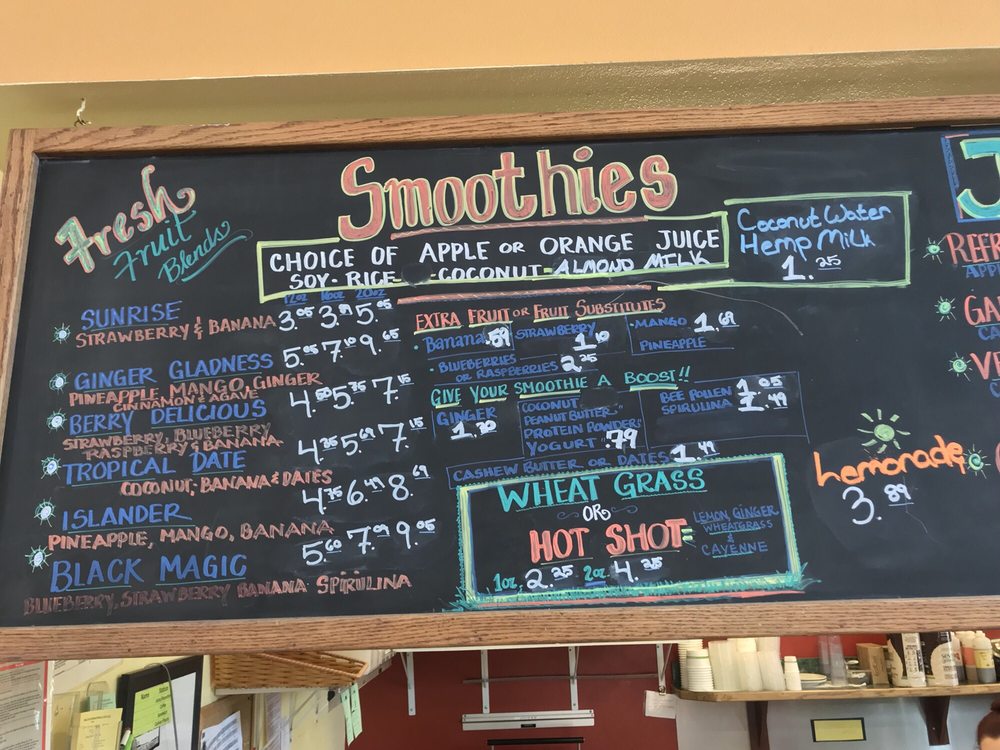 Fresh
Fruit
Blends
Smoothies
CHOICE OF APPLE OR ORANGE JUICE
SOY - RICE - COCONUT - ALMOND MILK
Coconut Water
Hemp Milk
1.25
12oz 16oz 20oz
SUNRISE
STRAWBERRY & BANANA 3.05 3.89 5.05
GINGER GLADNESS 5.05 7.10 9.65
PINEAPPLE, MANGO, GINGER
CINNAMON & AGAVE
BERRY DELICIOUS 4.50 5.75 7.15
STRAWBERRY, BLUEBERRY
RASPBERRY & BANANA
TROPICAL DATE 4.35 5.69 7.15
COCONUT, BANANA & DATES
ISLANDER 4.75 6.49 8.69
PINEAPPLE, MANGO, BANANA
BLACK MAGIC 5.60 7.09 9.05
BLUEBERRY, STRAWBERRY BANANA SPIRULINA
EXTRA FRUIT OR FRUIT SUBSTITUTES
Banana .59 STRAWBERRY 1.10
MANGO 1.69
PINEAPPLE
BLUEBERRIES
OR RASPBERRIES 2.25
GIVE YOUR SMOOTHIE A BOOST!!
GINGER
1.30
COCONUT
PEANUT BUTTER
PROTEIN POWDERS
YOGURT .79
BEE POLLEN 1.05
SPIRULINA 1.49
CASHEW BUTTER OR DATES 1.49
WHEAT GRASS
OR
HOT SHOT =
LEMON GINGER
WHEATGRASS
& CAYENNE
1oz. 2.25 2oz 4.25
Lemonade
3.89
J
REFR
APPL
GA
VE